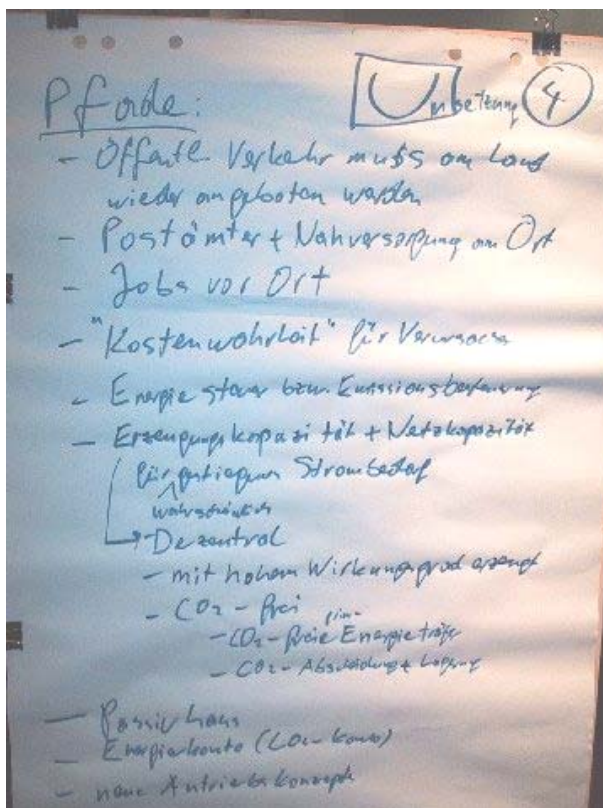 Pfade:
Umsetzung 4
- Öffentl. Verkehr muss am Land
wieder angeboten werden
- Postämter + Nahversorgung am Ort
- Jobs vor Ort
- "Kostenwahrheit" für Verursacher
- Energiesteuer bzw. Emissionsbesteuerung
- Erzeugungskapazität + Netzkapazität
für gestiegenen Strombedarf
wahrscheinlich
→ Dezentral
- mit hohem Wirkungsgrad erzeugt
- CO2-frei
- CO2-freie Energieträger
- CO2-Abscheidung + Lagerung
- Passivhaus
- Energiekonto (CO2-Konto)
- neue Antriebskonzepte